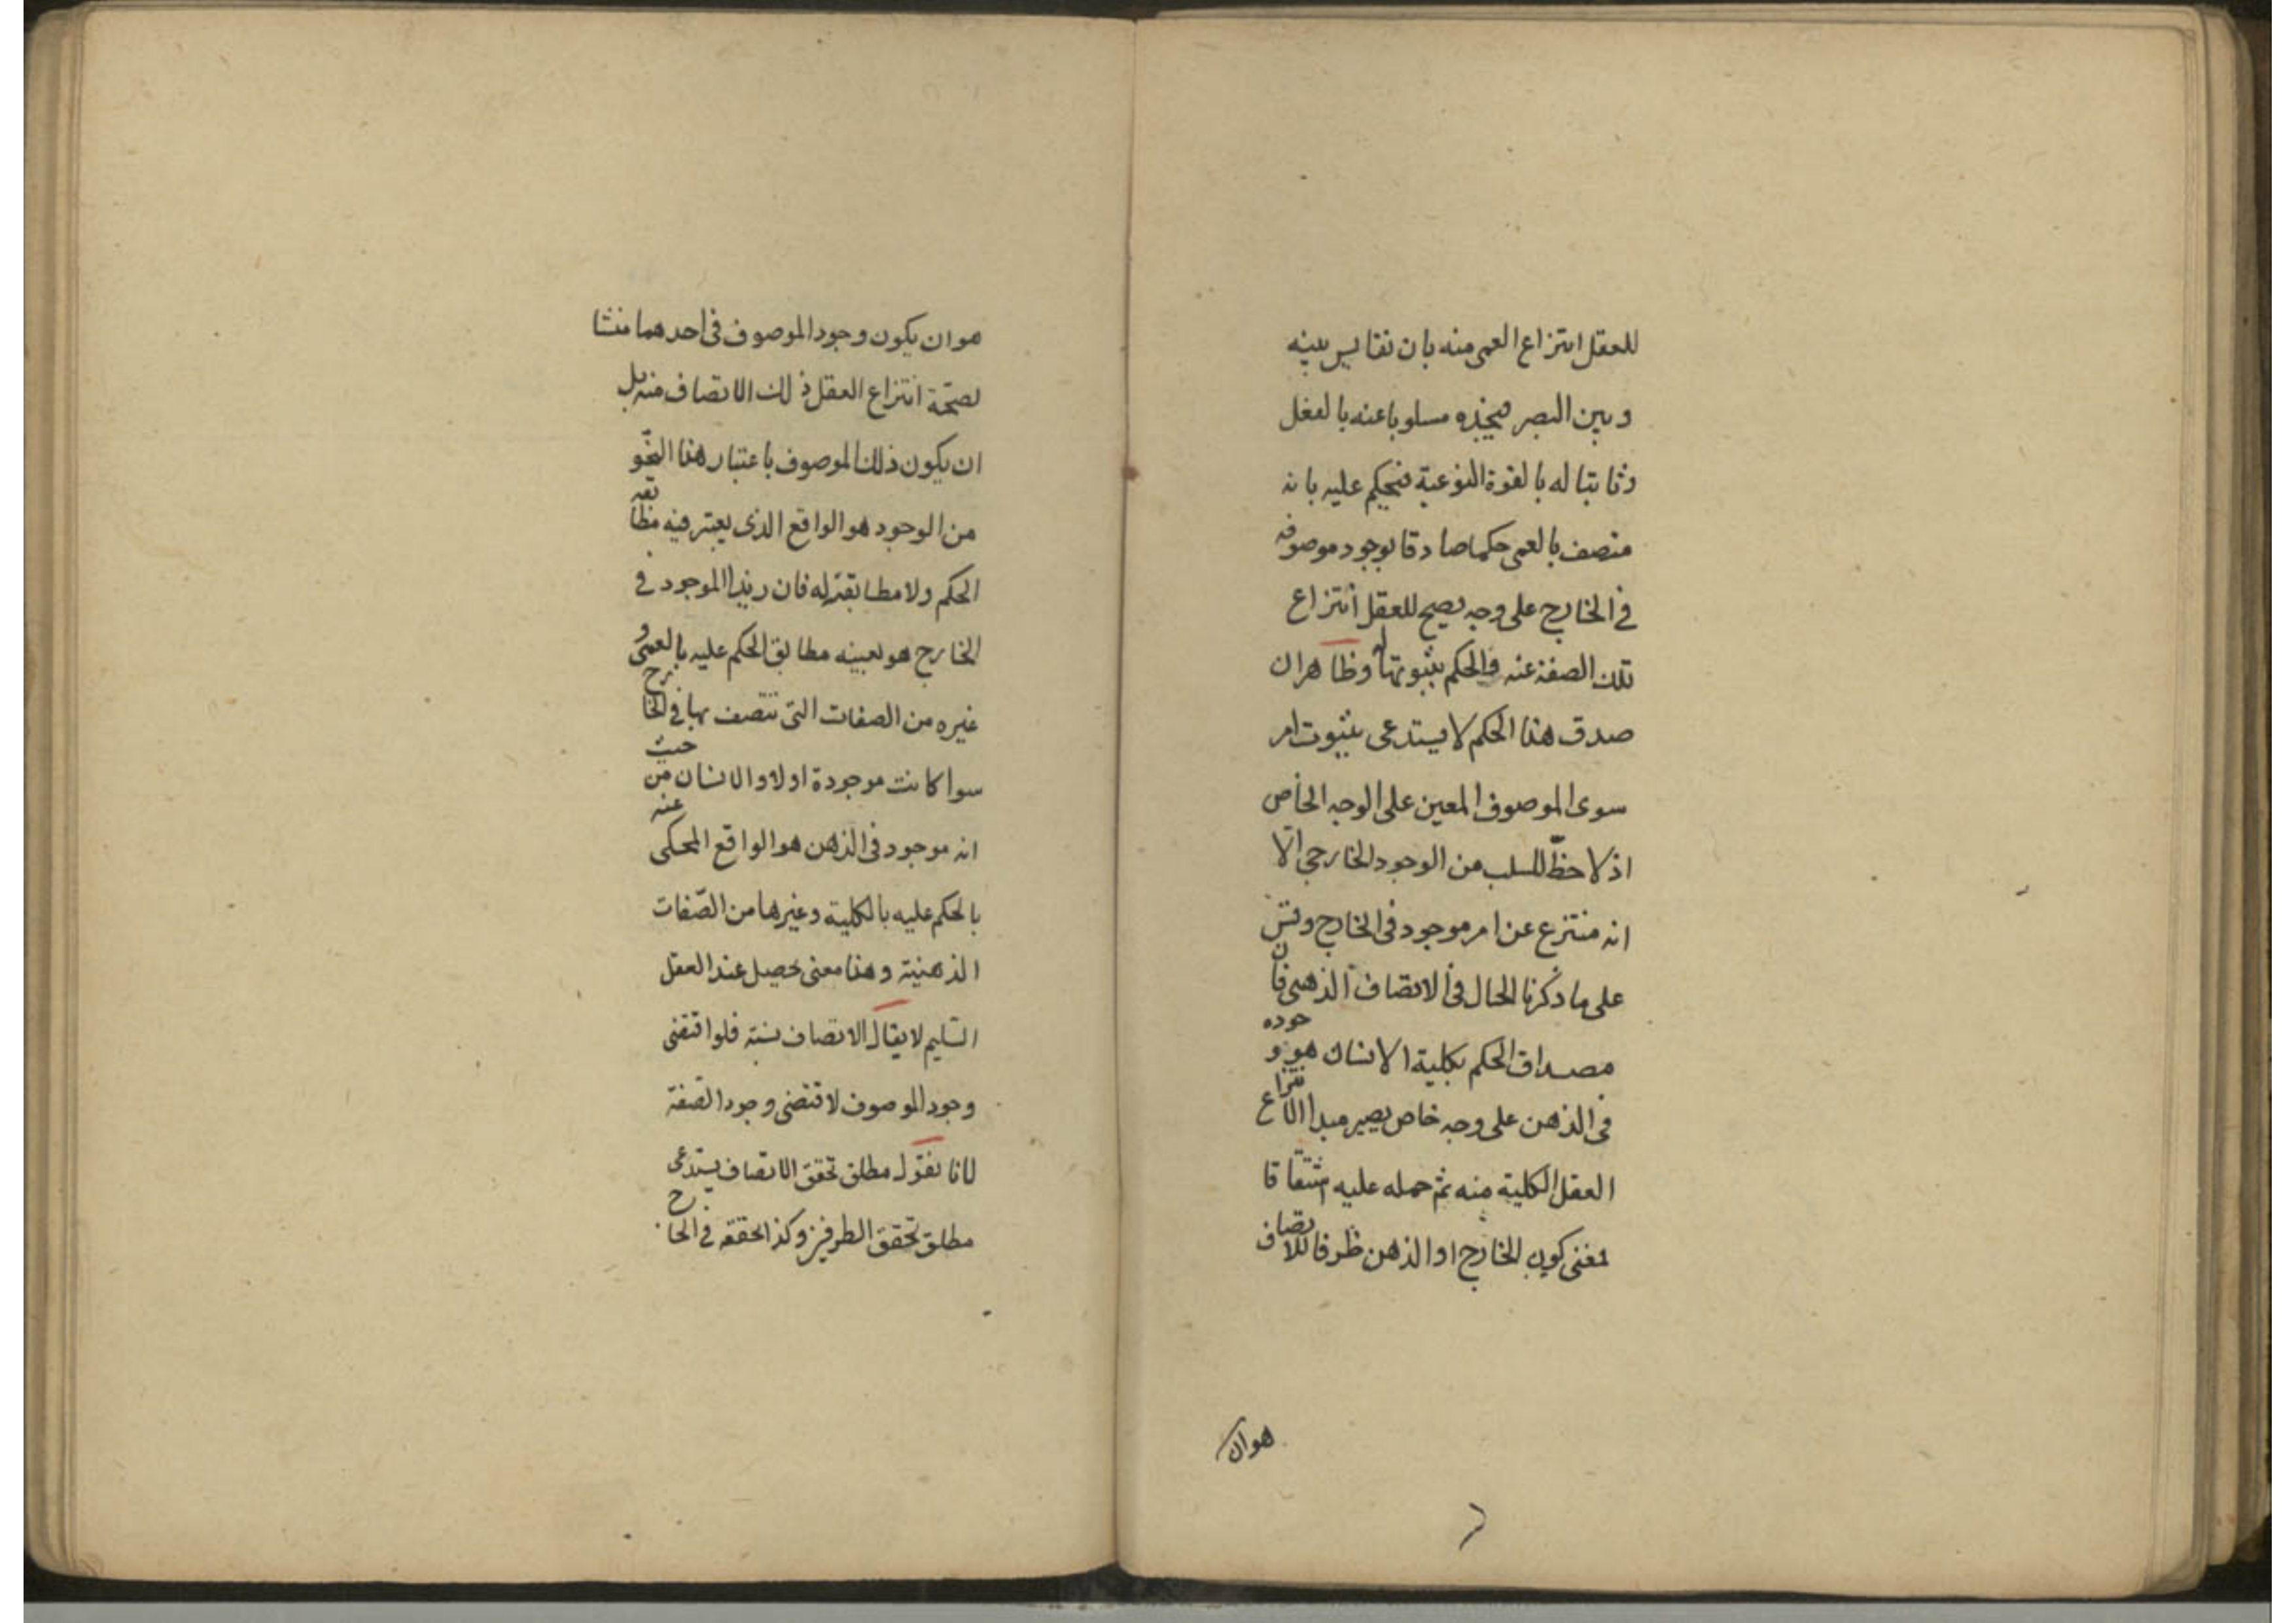 للعقل انتزاع العمى منه بان نقايس بينه
وبين البصر فيجده مسلوبا عنه بالفعل
وثابتا له بالقوة النوعية فيحكم عليه بانه
متصف بالعمى حكما صادقا بوجود موصوفه
في الخارج على وجه يصح للعقل انتزاع
تلك الصفة عنه والحكم بثبوتها له وظاهر ان
صدق هذا الحكم لا يستدعى بثبوت امر
سوى الموصوف المعين على الوجه الخاص
اذ لا حظّ للسلب من الوجود الخارجي الّا
انه منتزع عن امر موجود في الخارج وقس
على ما ذكرنا الحال في الاتصاف الذهنى فان
مصداق الحكم بكلية الانسان هو وجوده
في الذهن على وجه خاص يصير مبدا الانتزاع
العقل الكلية منه ثم حمله عليه اشتقاقا
لمعنى كون الخارج او الذهن ظرفا للاتصاف
هوان
هو ان يكون وجود الموصوف في احدهما منشا
لصحّة انتزاع العقل ذلك الاتصاف منه بل
ان يكون ذلك الموصوف باعتبار هذا النحو
من الوجود هو الواقع الذى يعتبر فيه مطابقته
الحكم ولا مطابقته له فان زيدا الموجود في
الخارج هو بعينه مطابق الحكم عليه بالعمى و
غيره من الصفات التى تتصف بها في الخارج
سوا كانت موجودة او لا والانسان من حيث
انه موجود في الذهن هو الواقع المحكى عنه
بالحكم عليه بالكلية وغيرها من الصّفات
الذهنية وهذا معنى يحصل عند العقل
السّليم لا يقال الاتصاف نسبة فلو اقتضى
وجود الموصوف لاقتضى وجود الصّفة
لانا نقول مطلق تحقق الاتصاف يستدعى
مطلق تحقق الطرفين وكذا تحققه في الخارج